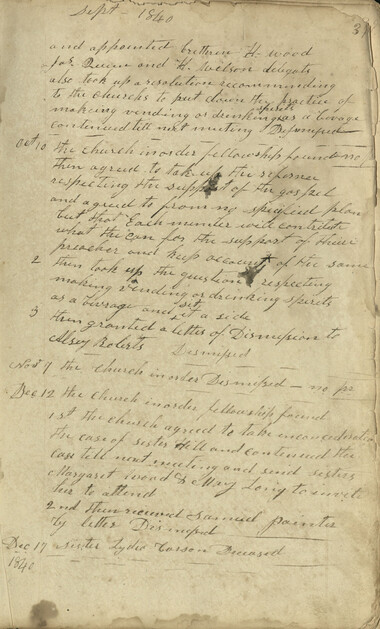 Sept - 1840
3
and appointed brethren H. Wood
for Quem and H. Wetson delegate
also took up a resolution recommending
to the Churchs to put down the practice of
spirits
making vending or drinking as a bivage
continued till next meeting Dismised
Oct 10 the church in order fellowship found no
then agreed to take up the referance
respecting the support of the gospel
and agreed to from no specified plan
but that Each member will contribute
what the can for the support of their
preacher and keep account of the same
2 then took up the question respecting
making vending or drinking spirits
as a bivrage and set a side
3 then granted a letter of Dismission to
Alsey Roberts Dismised
Nov 7 the Church in order Dismised - no
Dec 12 the Church in order fellowship found
1st the church agreed to take in consideration
the case of sister Hill and continued the
case till next meeting and send sisters
Margaret Wood & Mary Long to invite
her to attend
2nd then received Samuel painter
by letter Dismised
Dec 17 sister Lydia Carson Deceased
1840